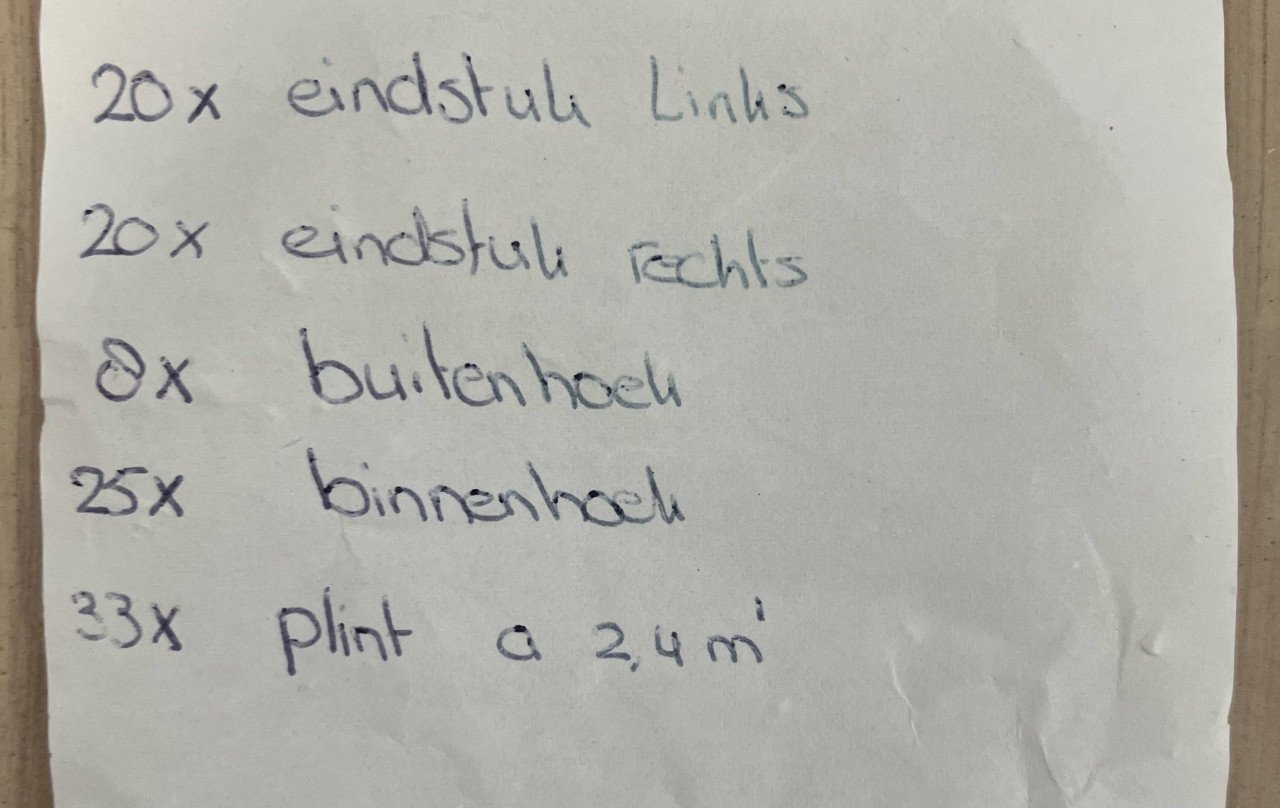 20x eindstuk Links
20x eindstuk rechts
8x buitenhoek
25x binnenhoek
33x plint a 2,4 m'